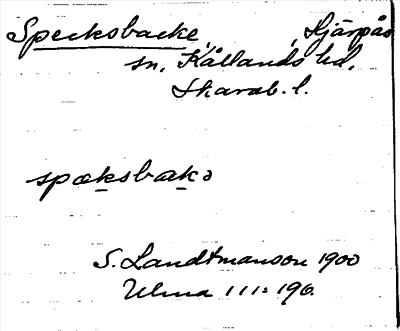 Specksbacke, Hjärpås
sn, Kållands hd,
Skarab. l.
spæksbakə
S. Landtmanson 1900
Ulma 111:196.